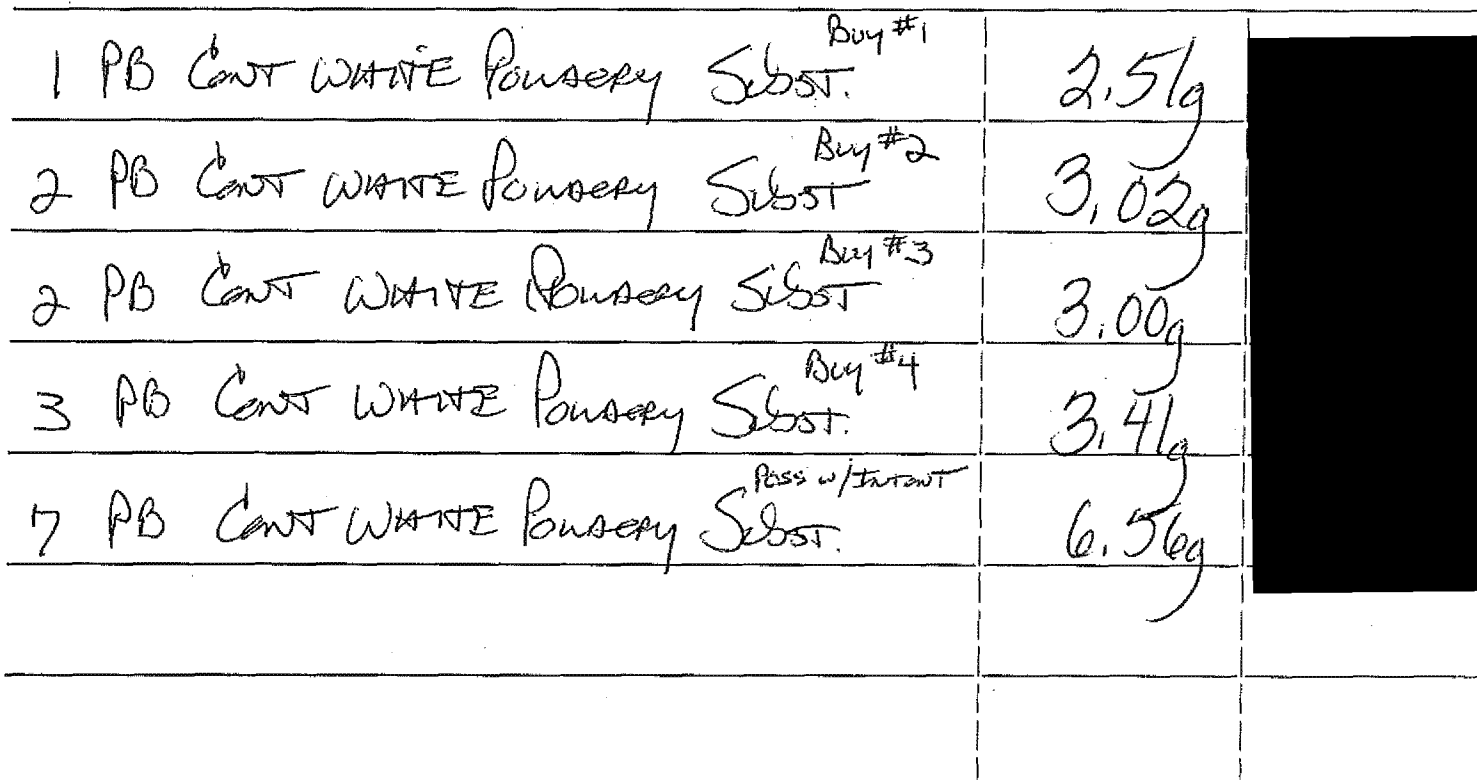 1 PB CONT WHITE POWDERY SUBST. Buy #1 2.51g
2 PB CONT WHITE POWDERY SUBST Buy #2 3.02g
2 PB CONT WHITE POWDERY SUBST Buy #3 3.00g
3 PB CONT WHITE POWDERY SUBST. Buy #4 3.41g
7 PB CONT WHITE POWDERY SUBST. POSS w/INTENT 6.56g